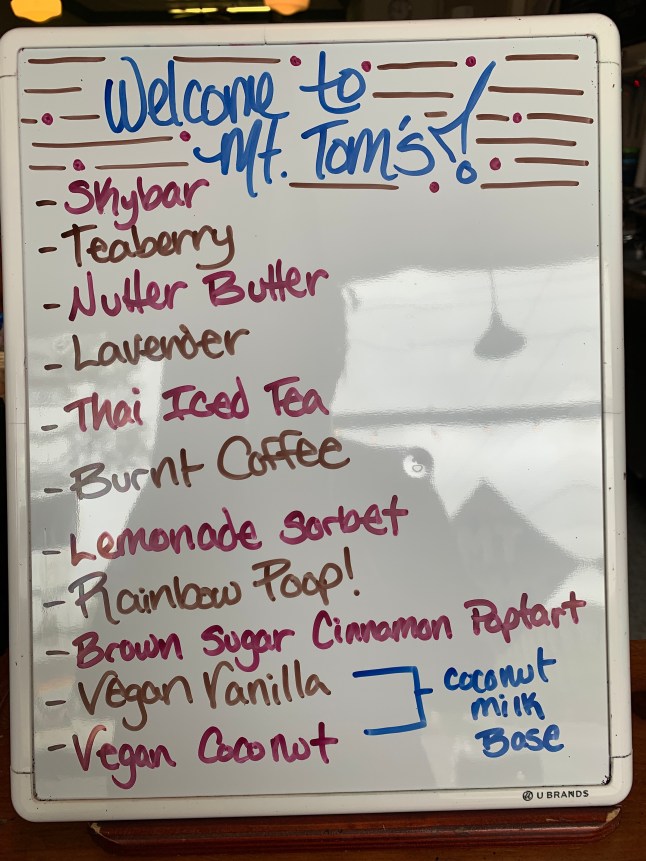 Welcome to
Mt. Tom's!
- Skybar
- Teaberry
- Nutter Butter
- Lavender
- Thai Iced Tea
- Burnt Coffee
- Lemonade Sorbet
- Rainbow Poop!
- Brown Sugar Cinnamon Poptart
- Vegan Vanilla
- Vegan Coconut
coconut
milk
Base
U BRANDS